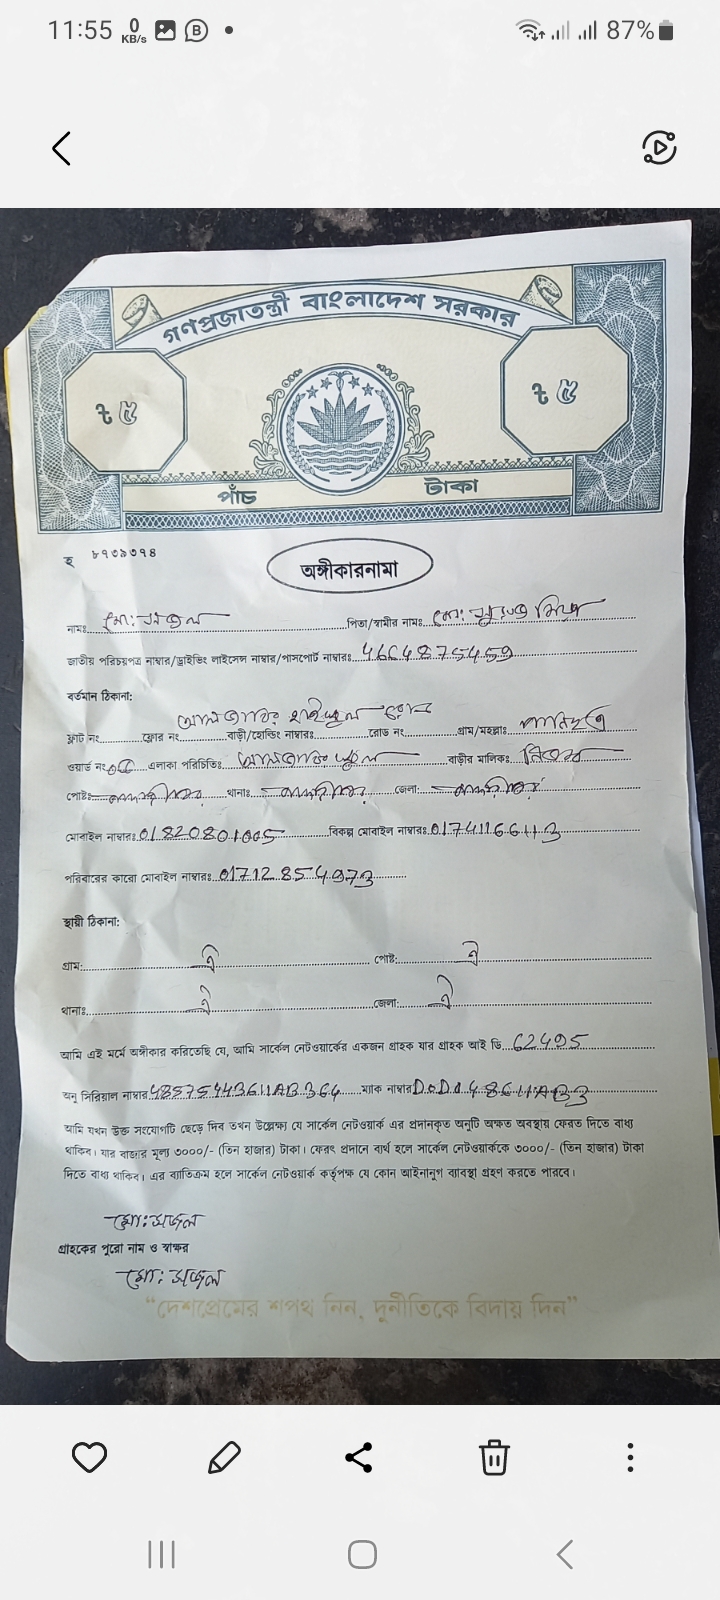 11:55 0 KB/s B 87%
গণপ্রজাতন্ত্রী বাংলাদেশ সরকার
৳ ৫ ৳ ৫
পাঁচ টাকা
হ ৮৭৩৯৩৭৪
অঙ্গীকারনামা
নামঃ মো: সজল পিতা/স্বামীর নামঃ মো: মিয়া
জাতীয় পরিচয়পত্র নাম্বার/ড্রাইভিং লাইসেন্স নাম্বার/পাসপোর্ট নাম্বারঃ 4664875459
বর্তমান ঠিকানা:
ফ্লাট নং ফ্লোর নং বাড়ী/হোল্ডিং নাম্বারঃ রোড নং গ্রাম/মহল্লাঃ
ওয়ার্ড নং এলাকা পরিচিতিঃ বাড়ীর মালিকঃ
পোষ্টঃ থানাঃ জেলা:
মোবাইল নাম্বারঃ 01820801005 বিকল্প মোবাইল নাম্বারঃ 01741166113
পরিবারের কারো মোবাইল নাম্বারঃ 01712854973
স্থায়ী ঠিকানা:
গ্রাম: ঐ পোষ্ট: ঐ
থানাঃ ঐ জেলা: ঐ
আমি এই মর্মে অঙ্গীকার করিতেছি যে, আমি সার্কেল নেটওয়ার্কের একজন গ্রাহক যার গ্রাহক আই ডি 62495
অনু সিরিয়াল নাম্বার 48575443611AB364 ম্যাক নাম্বার D0D048611AB3
আমি যখন উক্ত সংযোগটি ছেড়ে দিব তখন উল্লেক্ষ্য যে সার্কেল নেটওয়ার্ক এর প্রদানকৃত অনুটি অক্ষত অবস্থায় ফেরত দিতে বাধ্য
থাকিব। যার বাজার মূল্য ৩০০০/- (তিন হাজার) টাকা। ফেরৎ প্রদানে ব্যর্থ হলে সার্কেল নেটওয়ার্ককে ৩০০০/- (তিন হাজার) টাকা
দিতে বাধ্য থাকিব। এর ব্যতিক্রম হলে সার্কেল নেটওয়ার্ক কর্তৃপক্ষ যে কোন আইনানুগ ব্যাবস্থা গ্রহণ করতে পারবে।
মো: সজল
গ্রাহকের পুরো নাম ও স্বাক্ষর
মো: সজল
“দেশপ্রেমের শপথ নিন, দুর্নীতিকে বিদায় দিন”